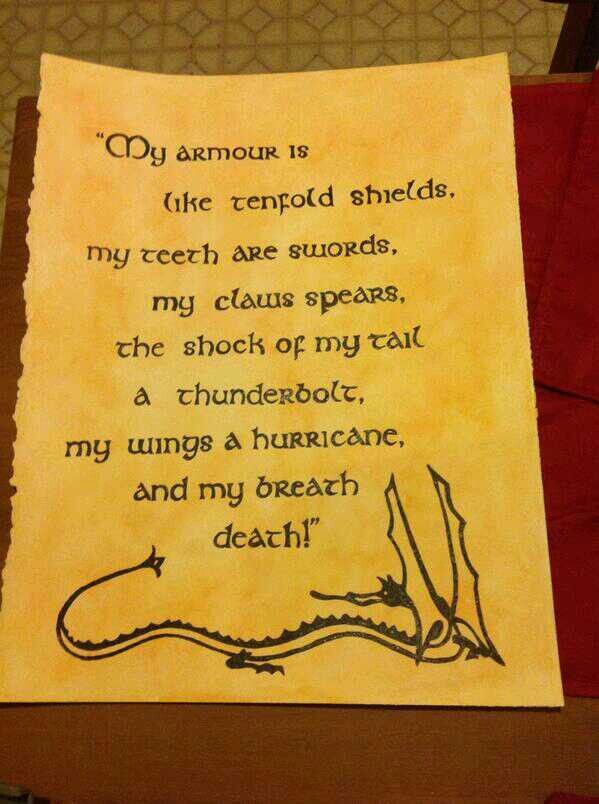 "My armour is
like tenfold shields,
my teeth are swords,
my claws spears,
the shock of my tail
a thunderbolt,
my wings a hurricane,
and my breath
death!"